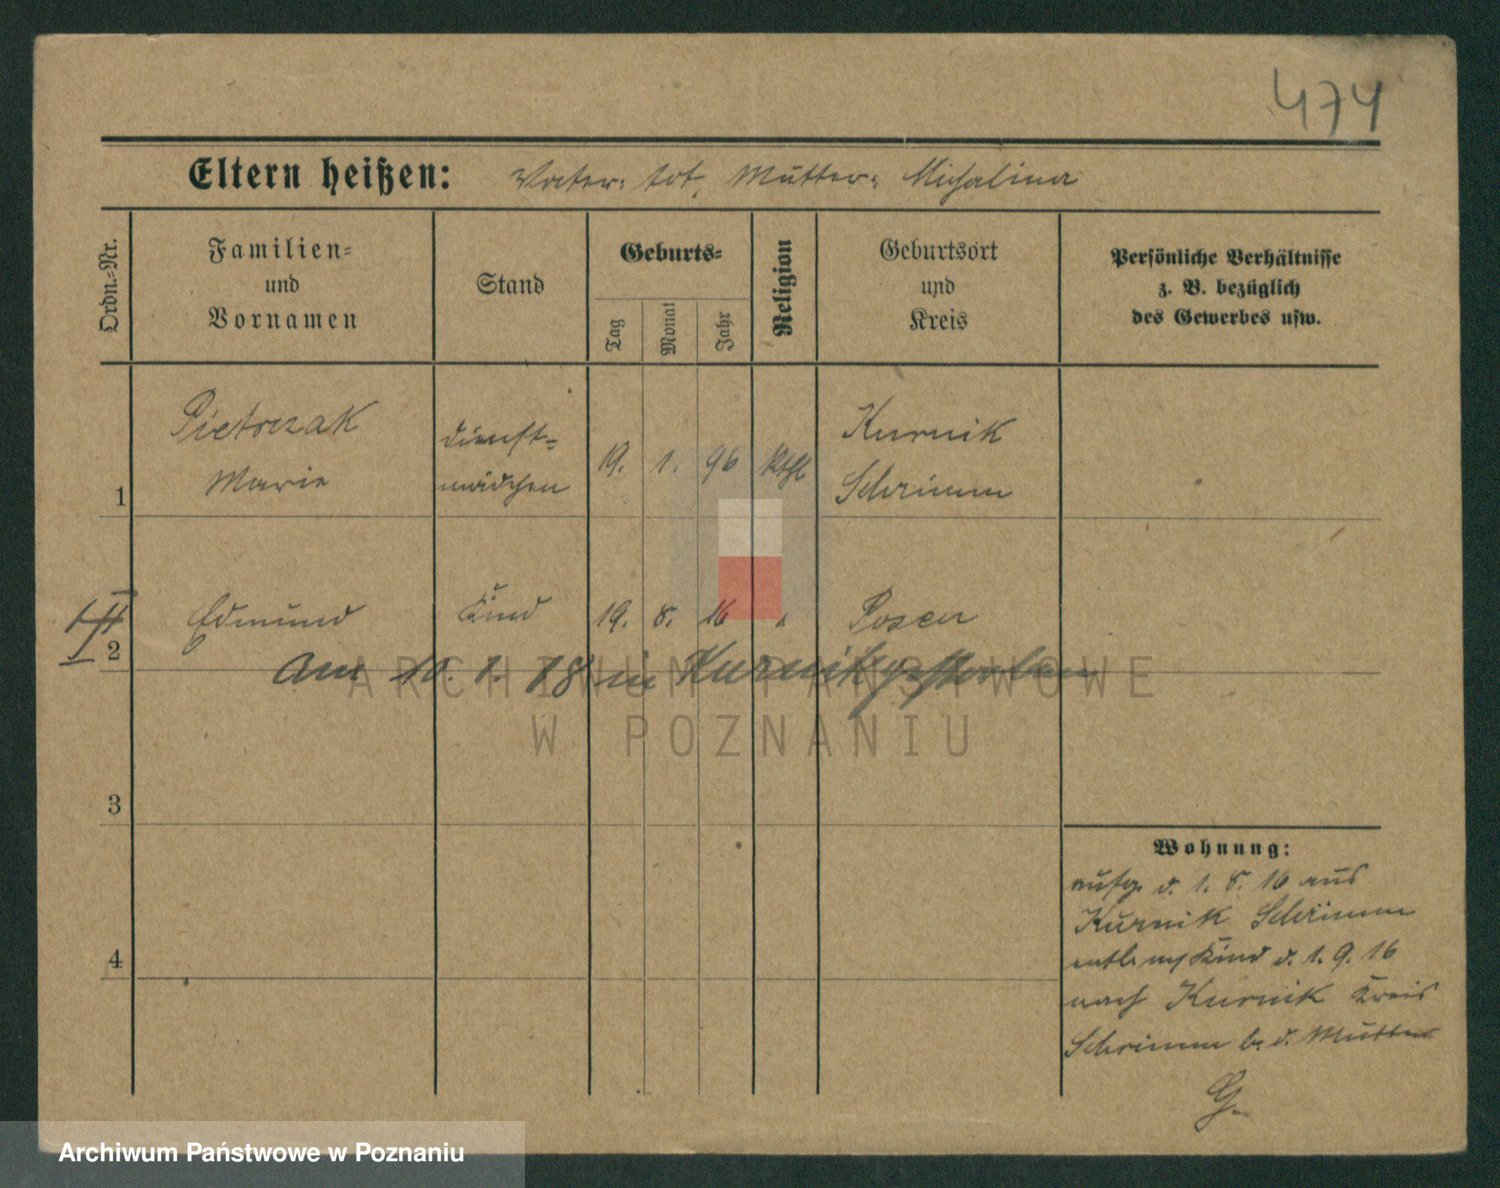 474
Eltern heißen: Vater: tot, Mutter: Michalina
Ordn.-Nr.
Familien-
und
Vornamen
Stand
Geburts-
Tag
Monat
Jahr
Religion
Geburtsort
und
Kreis
Persönliche Verhältnisse
z. B. bezüglich
des Gewerbes usw.
1
Pietrzak
Marie
Dienst-
mädchen
19. 1. 96 kthl
Kurnik
Schrimm
2
Edmund Kind 19. 8. 16 " Posen
am 10. 1. 18 in Kurnik gestorben
3
4
Wohnung:
aufg. d. 1. 8. 16 aus
Kurnik Schrimm
entl. m/ Kind d. 1. 9. 16
nach Kurnik Kreis
Schrimm b. d. Mutter
G.
ARCHIWUM PAŃSTWOWE
W POZNANIU
Archiwum Państwowe w Poznaniu